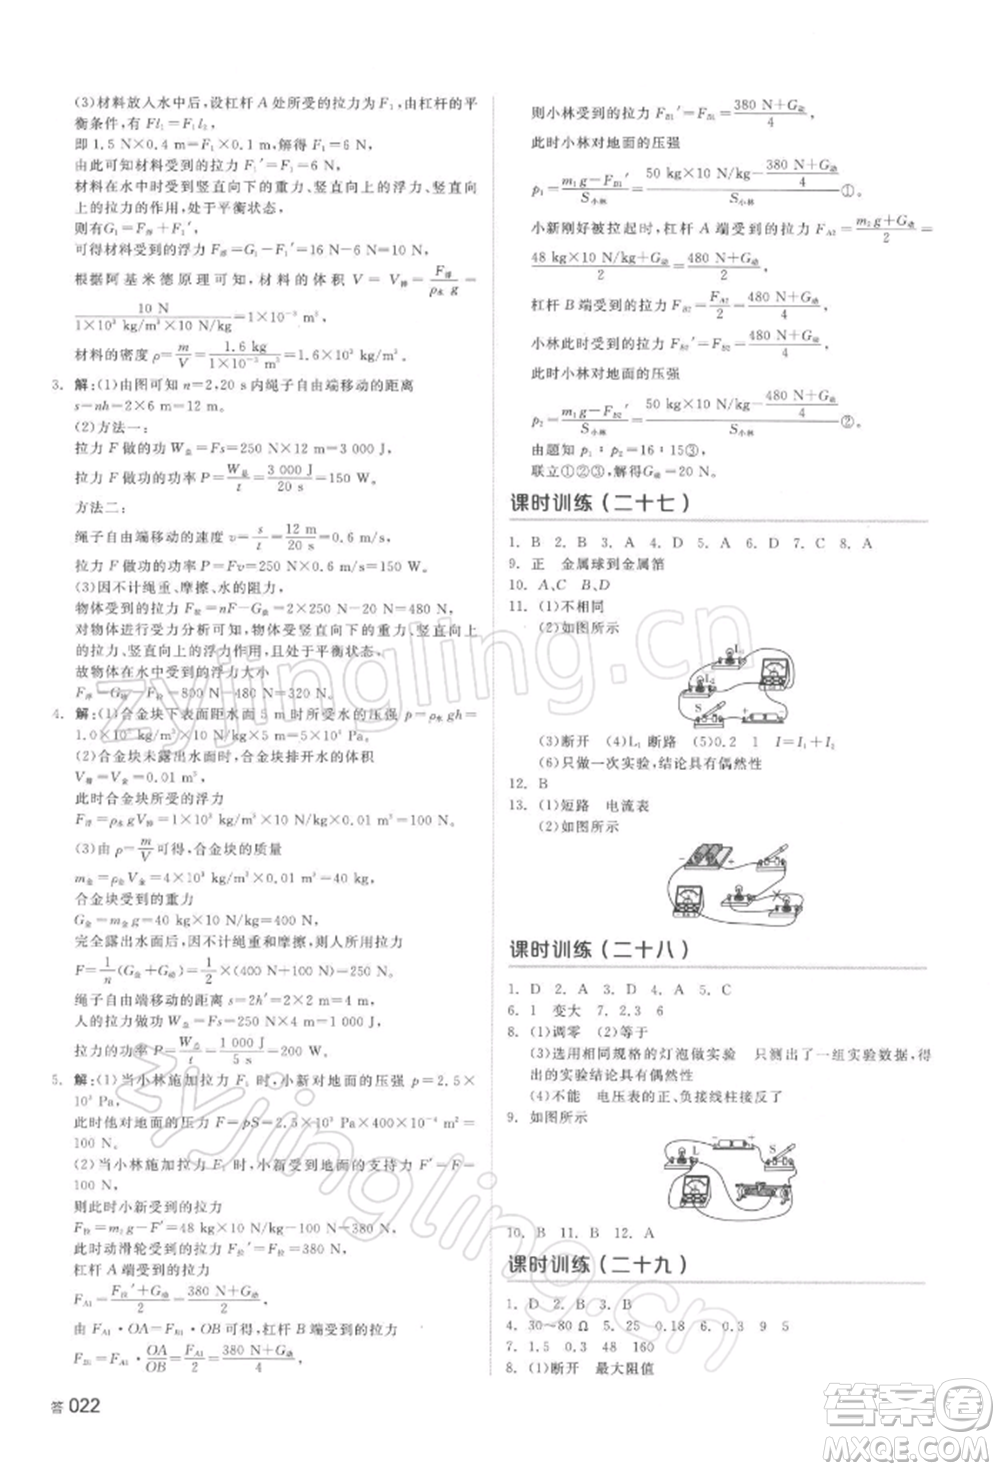 (3)材料放入水中后,设杠杆 A 处所受的拉力为 F₁,由杠杆的平
衡条件,有 Fl₁=F₁l₂,
即 1.5 N×0.4 m=F₁×0.1 m,解得 F₁=6 N,
由此可知材料受到的拉力 F₁′=F₁=6 N,
材料在水中时受到竖直向下的重力、竖直向上的浮力、竖直向
上的拉力的作用,处于平衡状态,
则有G₁=F浮+F₁′,
可得材料受到的浮力 F浮=G₁-F₁′=16 N-6 N=10 N,
根据阿基米德原理可知,材料的体积 V=V排=F浮/(ρ水 g)=
10 N/(1×10³ kg/m³×10 N/kg)=1×10⁻³ m³,
材料的密度 ρ=m/V=1.6 kg/(1×10⁻³ m³)=1.6×10³ kg/m³
3. 解:(1)由图可知 n=2,20 s内绳子自由端移动的距离
s=nh=2×6 m=12 m,
(2)方法一:
拉力 F 做的功 W总=Fs=250 N×12 m=3 000 J,
拉力 F 做功的功率 P=W总/t=3 000 J/20 s=150 W,
方法二:
绳子自由端移动的速度 v=s/t=12 m/20 s=0.6 m/s,
拉力 F 做功的功率 P=Fv=250 N×0.6 m/s=150 W,
(3)因不计绳重、摩擦、水的阻力,
物体受到的拉力 F拉=nF-G动=2×250 N-20 N=480 N,
对物体进行受力分析可知,物体受竖直向下的重力、竖直向上
的拉力、竖直向上的浮力,处于平衡状态,
故物体在水中受到的浮力大小
F浮=G物-F拉=800 N-480 N=320 N.
4. 解:(1)合金块下表面距水面 5 m 时所受水的压强 p=ρ水 gh=
1.0×10³ kg/m³×10 N/kg×5 m=5×10⁴ Pa.
(2)合金块未露出水面时,合金块排开水的体积
V排=V金=0.01 m³,
此时合金块所受的浮力
F浮=ρ水 gV排=1×10³ kg/m³×10 N/kg×0.01 m³=100 N.
(3)由 ρ=m/V可得,合金块的质量
m金=ρ金 V金=4×10³ kg/m³×0.01 m³=40 kg,
合金块受到的重力
G金=m金 g=40 kg×10 N/kg=400 N,
完全露出水面后,不计绳重和摩擦,则人所用拉力
F=1/n(G金+G动)=1/2×(400 N+100 N)=250 N,
绳子自由端移动的距离 s=2h′=2×2 m=4 m,
人的拉力做功 W总=Fs=250 N×4 m=1 000 J,
拉力的功率 P=W总/t=1 000 J/5 s=200 W.
5. 解:(1)当小林施加拉力 F₁ 时,小新对地面的压强 p=2.5×
10³ Pa,
此时他对地面的压力 F=pS=2.5×10³ Pa×400×10⁻⁴ m²=
100 N.
(2)当小林施加拉力 F₁ 时,小新受到地面的支持力 F′=F=
100 N,
则此时小新受到的拉力
F拉=m₂g-F′=48 kg×10 N/kg-100 N=380 N,
此时动滑轮受到的拉力 F拉′=F拉=380 N,
杠杆 A 端受到的拉力
F_A1=(F拉′+G动)/2=(380 N+G动)/2,
由 F_A1·OA=F_B1·OB可得,杠杆 B 端受到的拉力
F_B1=F_A1·OA/OB=(380 N+G动)/4,
答 022
则小林受到的拉力 F_B1′=F_B1=(380 N+G动)/4
此时小林对地面的压强
p₁=(m₁g-F_B1′)/S小林=(50 kg×10 N/kg-(380 N+G动)/4)/S小林①,
小新刚好被拉起时,杠杆 A 端受到的拉力 F_A2=(m₂g+G动)/2=
(48 kg×10 N/kg+G动)/2=(480 N+G动)/2,
杠杆 B 端受到的拉力 F_B2=F_A2/2=(480 N+G动)/4,
小林此时受到的拉力 F_B2′=F_B2=(480 N+G动)/4,
此时小林对地面的压强
p₂=(m₁g-F_B2′)/S小林=(50 kg×10 N/kg-(480 N+G动)/4)/S小林②,
由题知 p₁∶p₂=16∶15③,
联立①②③,解得G动=20 N.
课时训练(二十七)
1. B 2. B 3. A 4. D 5. A 6. D 7. C 8. A
9. 正 金属球到金属箔
10. A、C B、D
11. (1)不相同
(2)如图所示
(3)断开 (4)L₁ 断路 (5)0.2 1 I=I₁+I₂
(6)只做一次实验,结论具有偶然性
12. B
13. (1)短路 电流表
(2)如图所示
课时训练(二十八)
1. D 2. A 3. D 4. A 5. A
6. 1 变大 7. 2,3 6
8. (1)调零 (2)等于
(3)选用相同规格的灯泡做实验 只测出一组实验数据,得出
的实验结论具有偶然性
(4)不能 电压表的正、负接线柱接反了
9. 如图所示
10. B 11. B 12. A
课时训练(二十九)
1. D 2. B 3. B
4. 30~80 Ω 0.25 0.18 5. 0.3 9 5
7. 1.5 0.3 48 160
8. (1)断开 最大阻值
zyjingling.cn
zyjingling.cn
答案圈
MXQE.COM